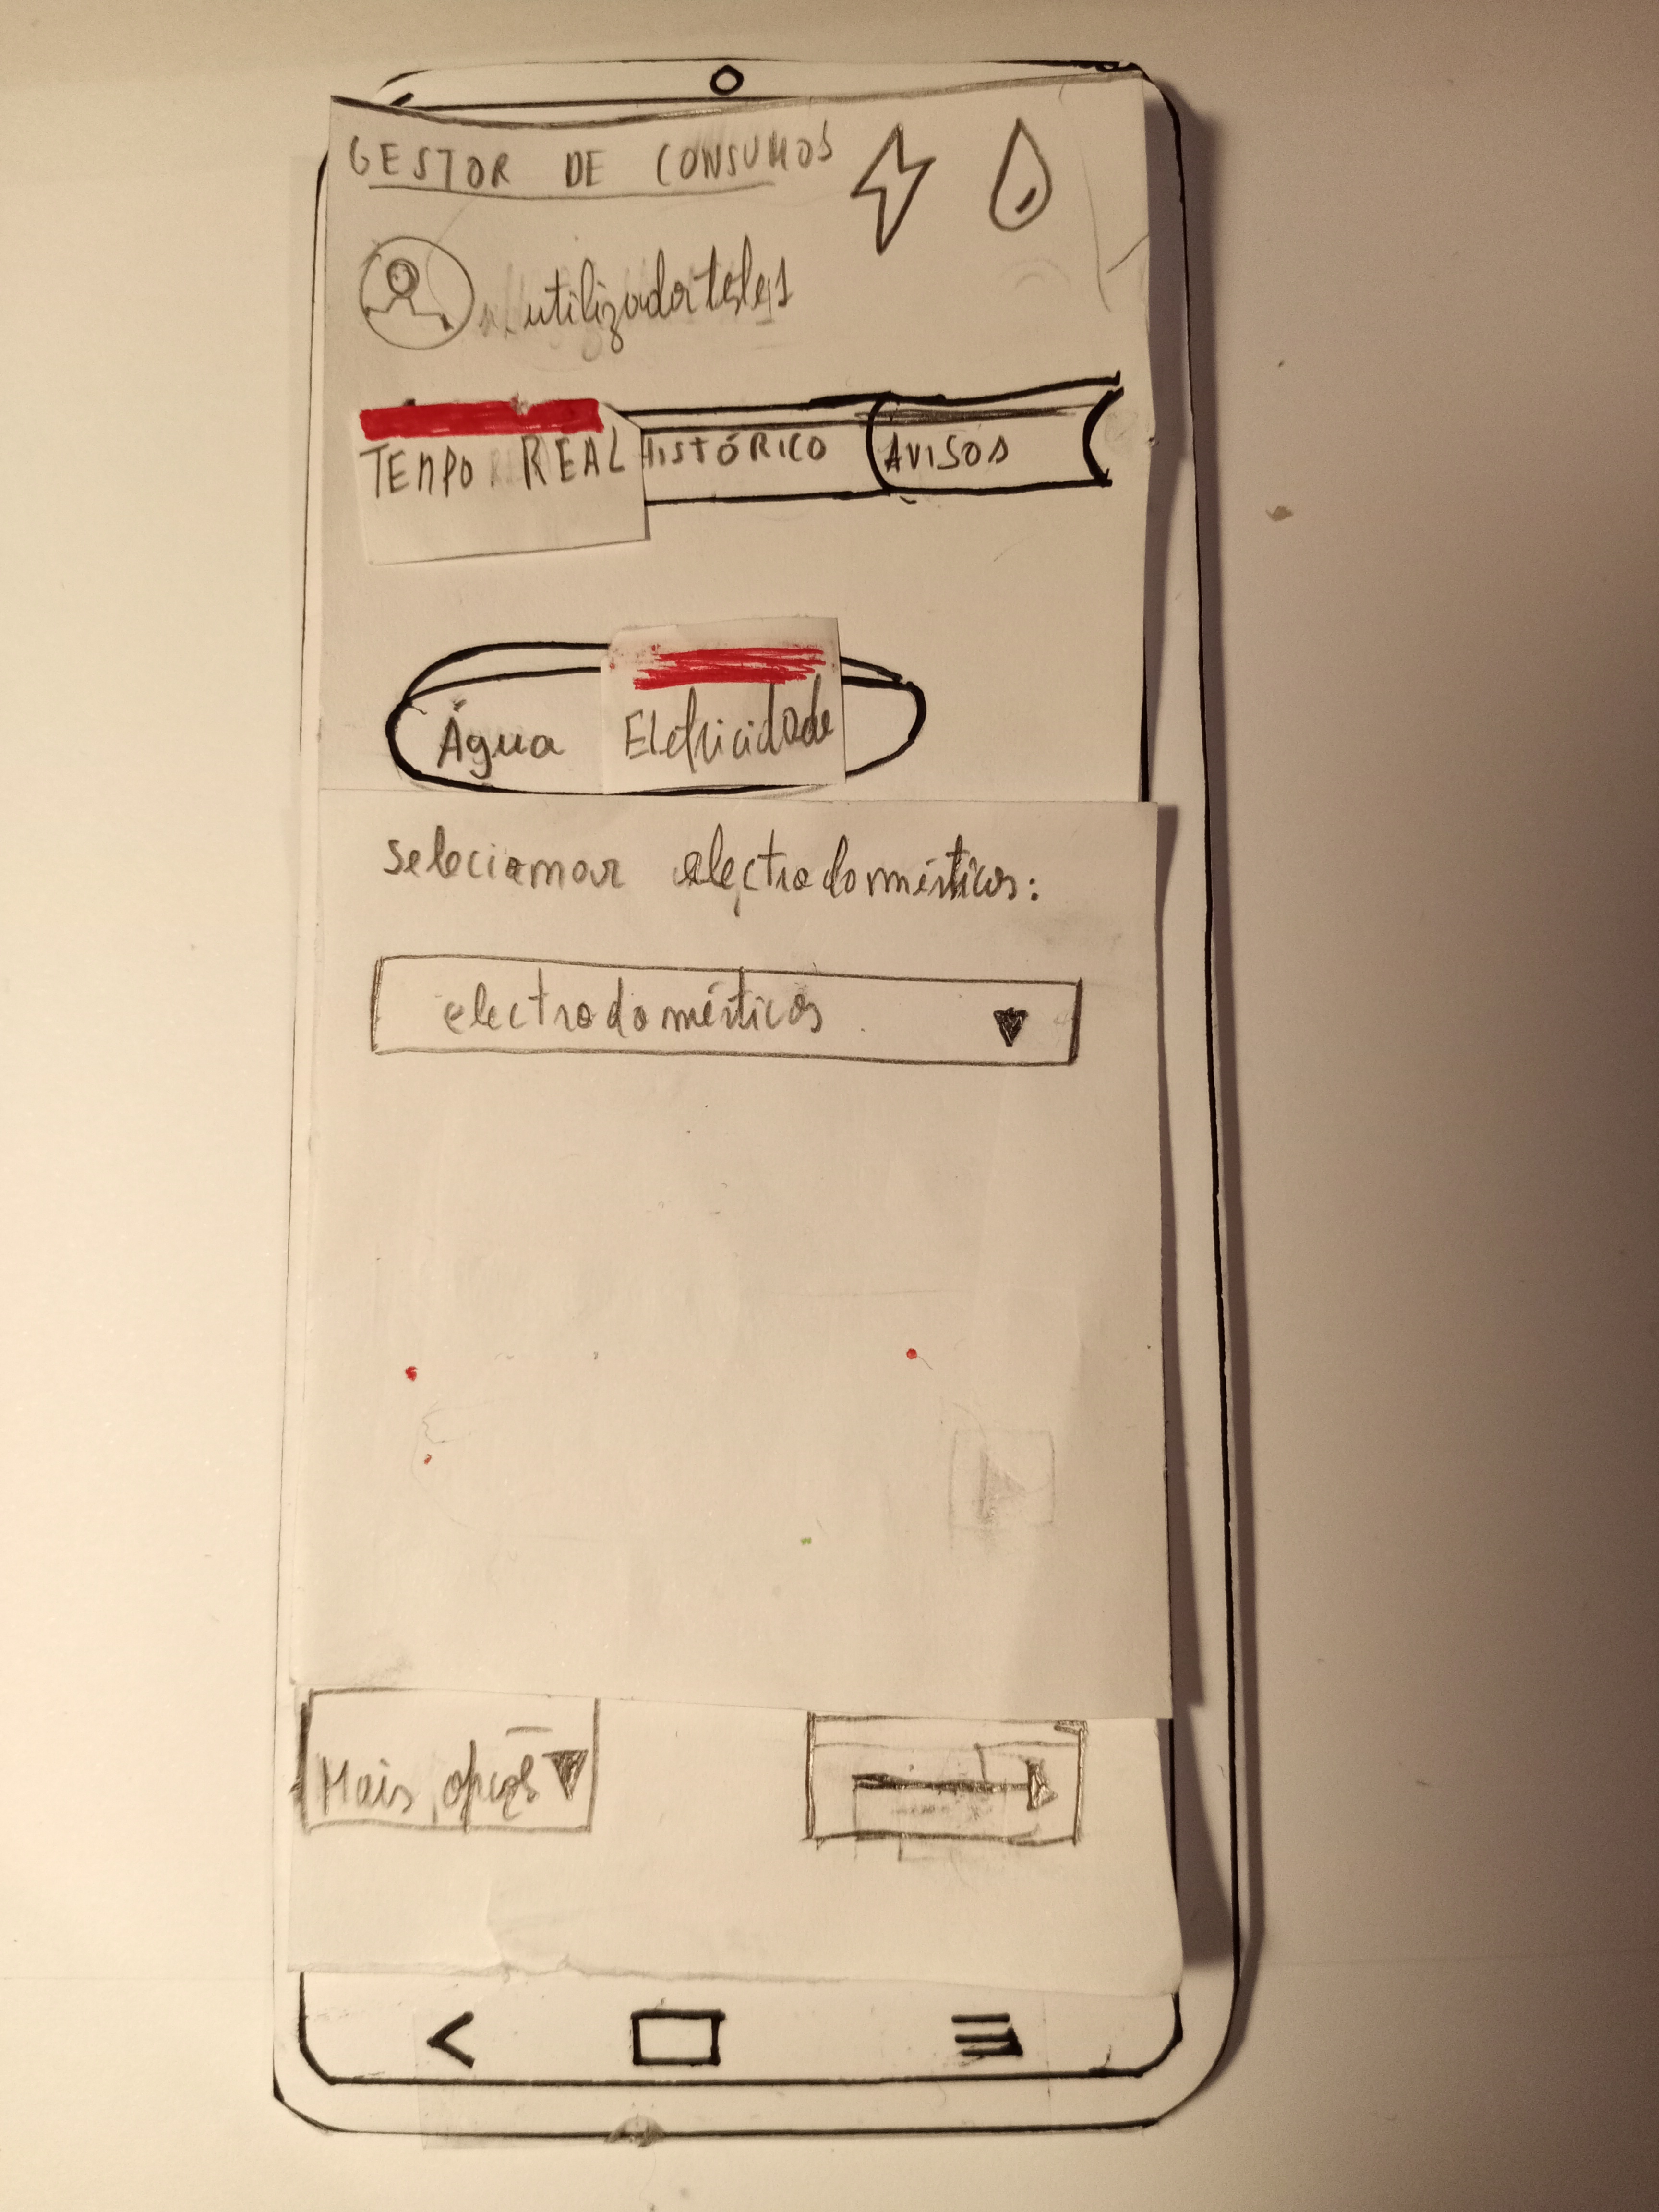 GESTOR DE CONSUMOS
utilizador teles1
TEMPO REAL HISTÓRICO AVISOS
Água Eletricidade
selecionar electrodomésticos:
electrodomésticos
Mais opções